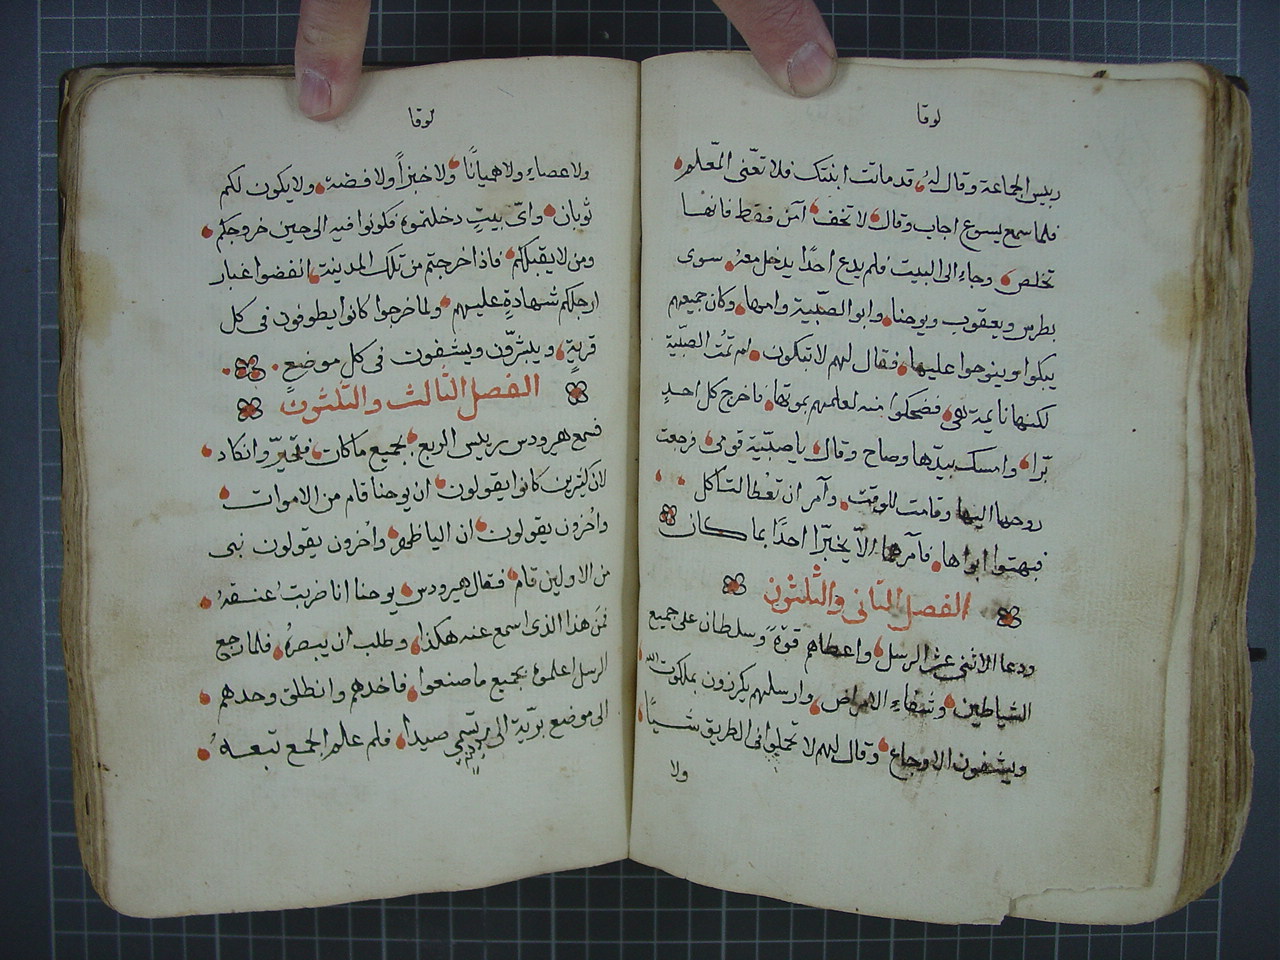 لوقا
ريس الجماعة وقال له قد ماتت ابنتك فلا تعنّى المّعلم
فلما سمع يسوع اجاب وقال لا تخف آمن فقط فانها
تخلص وجاء الى البيت فلم يدع احدًا يدخل معه سوى
بطرس ويعقوب ويوحنا وابو الصّبية وامها وكان جميعهم
يبكوا وينوحوا عليها فقال لهم لا تبكون لم تمُت الصبيّة
لكنها نايمة هي فضحكوا منه لعلمهم بموتها فاخرج كل احدٍ
برا وامسك بيدّها وصاح وقال يا صبيّة قومى فرجعت
روحها اليها وقامت للوقت وآمر ان تعُطا لتاكل
فبهتوا ابواها فآمرهما الاّ يخبرّا احدًا بما كان
الفصل الثانى والثلثون
ودعا الاثنى عشر الرسل واعطاهم قوّة وسلطان على جميع
الشياطين وشفاء الامراض وارسلهم يكرزون بملكوت الله
ويشفون الاوجاع وقال لهم لا تحملوا فى الطريق شيئًا
ولا
لوقا
ولا عصاء ولا هميانًا ولا خبزاً ولا فضة ولا يكون لكم
ثوبان واىّ بيتٍ دخلتموه فكونوا فيه الى حين خروجكم
ومن لا يقبلكم فاذا خرجتم من تلك المدينة انفضوا غبار
ارجلكم شهادةٍ عليهم ولما خرجوا كانوا يطوفون فى كل
قريةٍ ويبشرّون ويشفون فى كل موضعٍ
الفصل الثالث والثلثون
فسمع هيرودس ريس الربع بجميع ما كان فتحيّر وانكاد
لان كثيرين كانوا يقولون ان يوحنا قام من الاموات
واخُرون يقولون ان اليا ظهر واخُرون يقولون نبى
من الاولين قام فقال هيرودس يوحنا انا ضربتُ عنقهُ
فمن هذا الذى اسمع عنه هكذا وطلب ان يبصرهُ فلما رجع
الرسل اعلموهُ بجميع ما صنعوا فاخدهم وانطلق وحدهم
الى موضع برّية الى تسّمى صيدا فلم علم الجمع تبعهُ